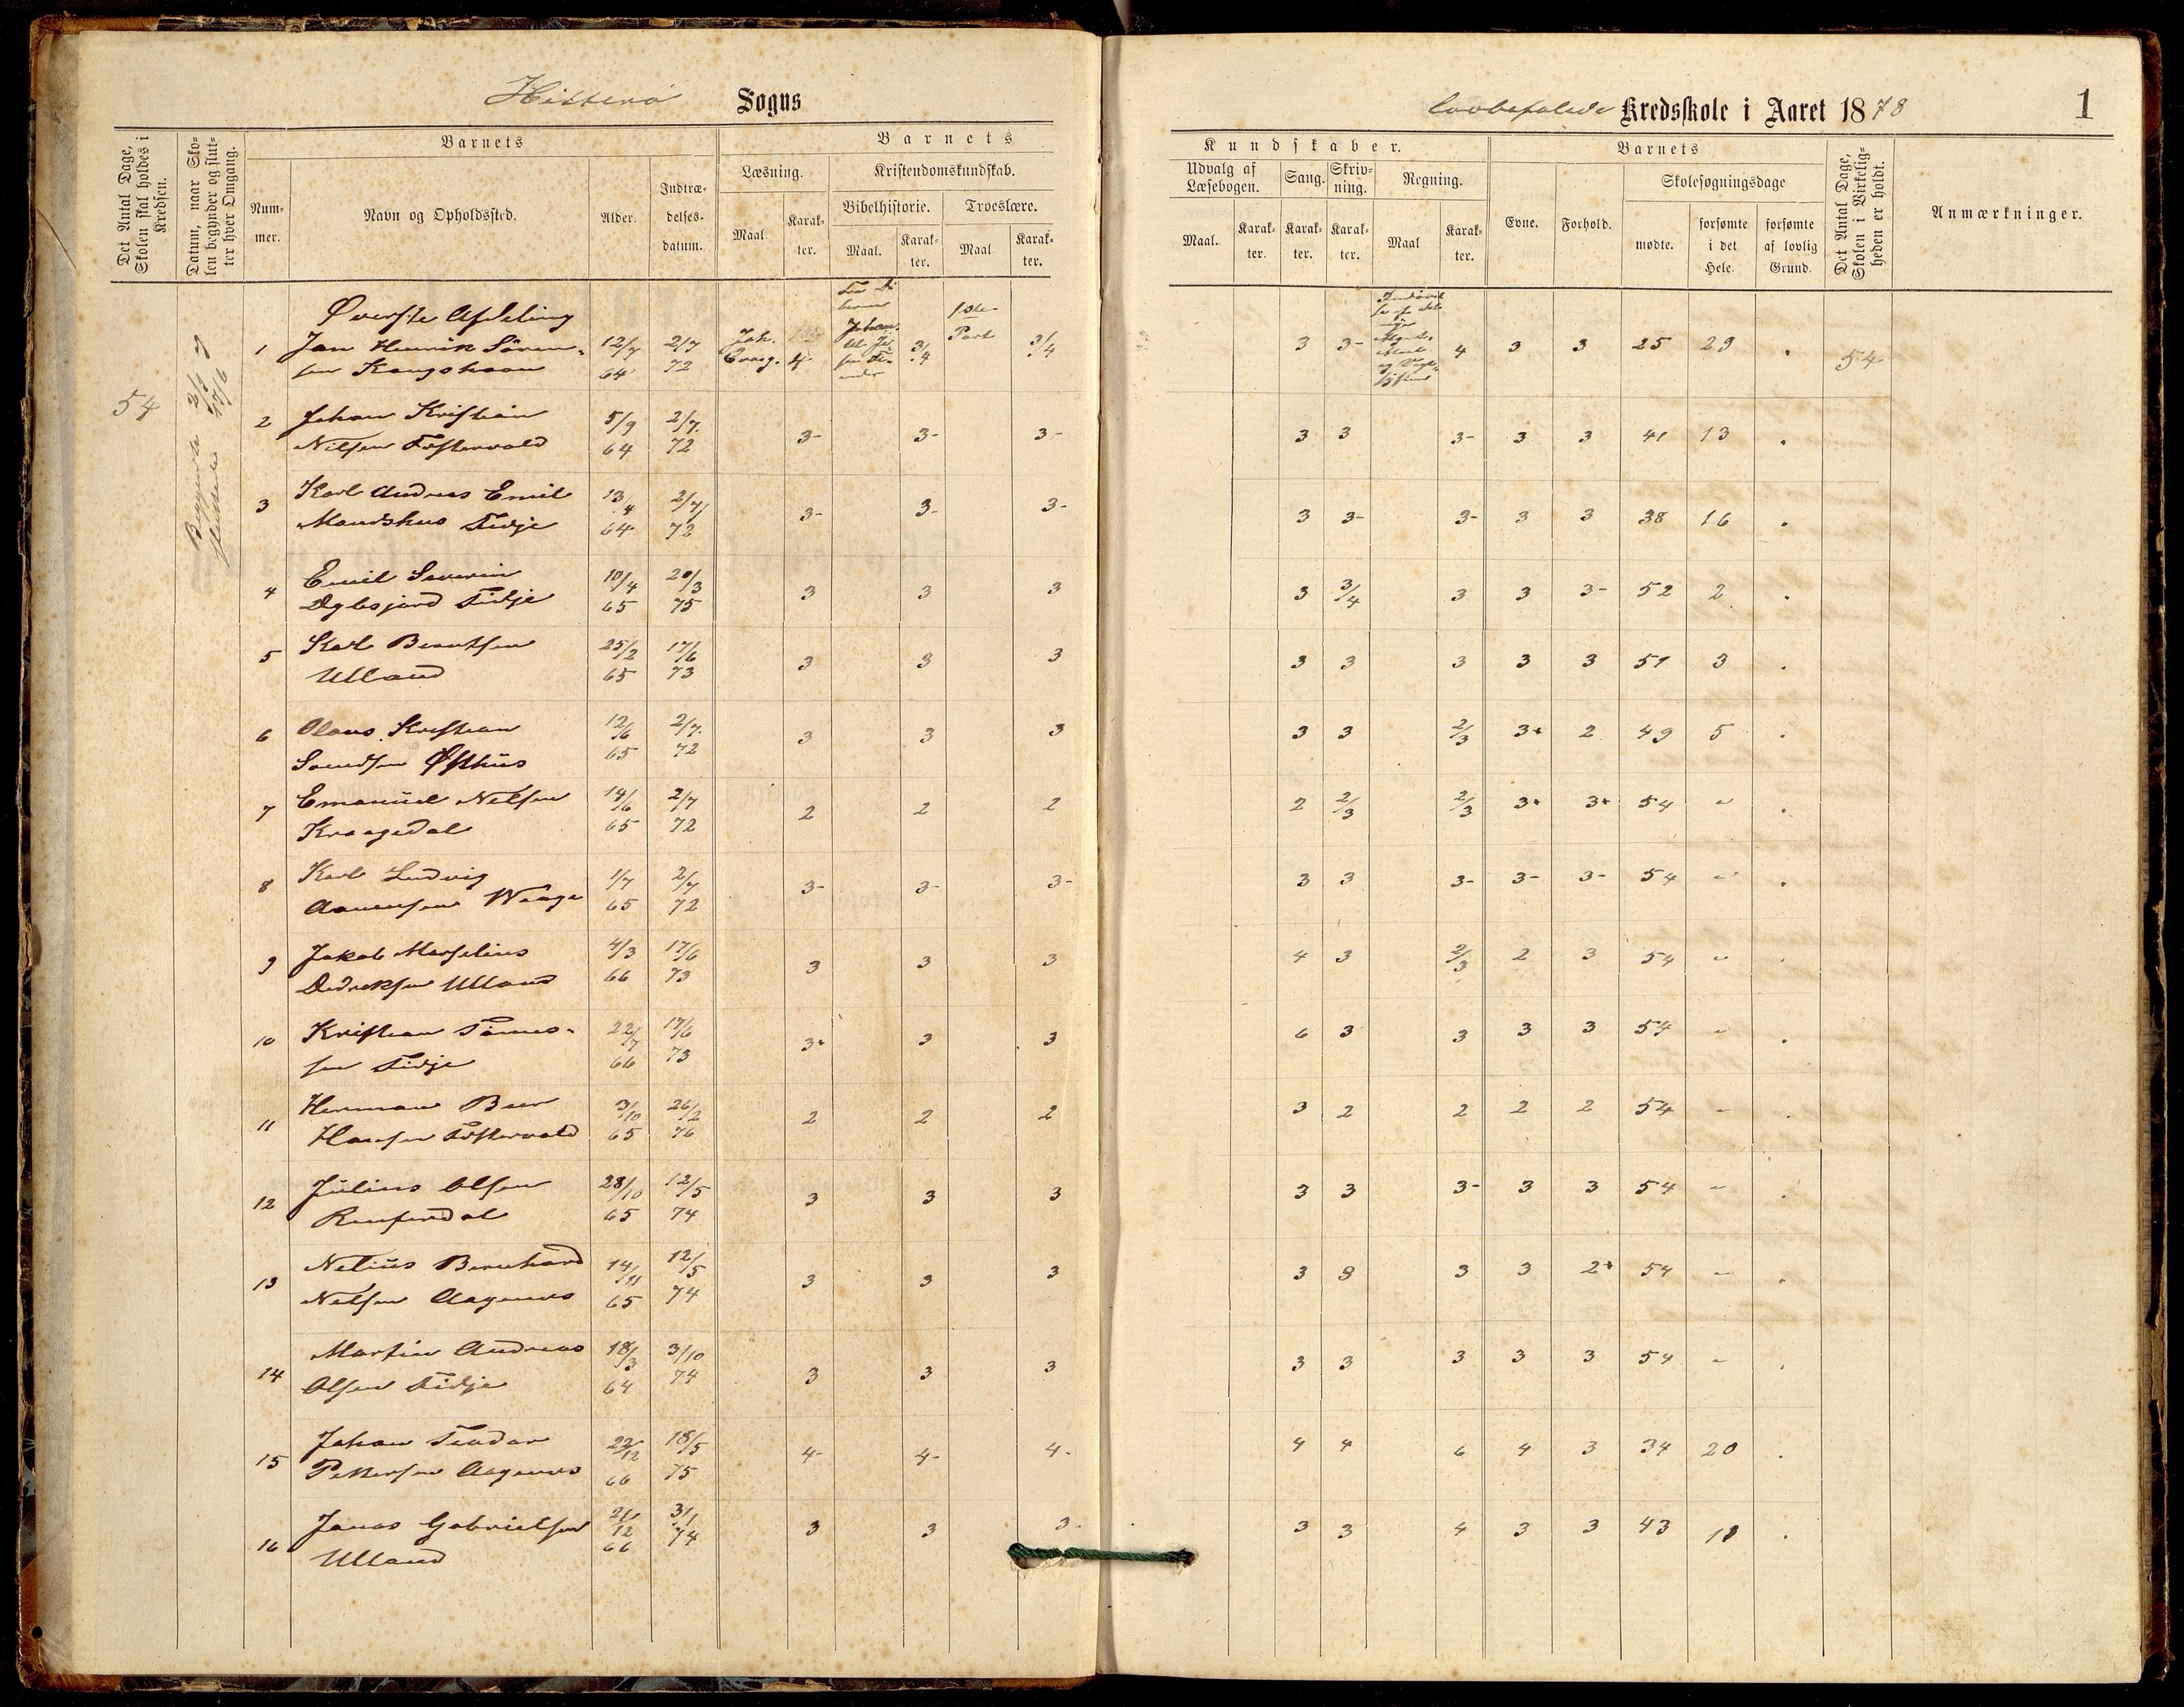 Hitterø Sogns
lovbefalede Kredsskole i Aaret 1878
1
Det Antal Dage, Skolen skal holdes i Kredsen.
Datum, naar Skolen begynder og slutter hver Omgang.
Barnets
Nummer.
Navn og Opholdssted.
Alder.
Indtrædelsesdatum.
Barnets
Læsning.
Maal.
Karakter.
Kristendomskundskab.
Bibelhistorie.
Maal.
Karakter.
Troeslære.
Maal
Karakter.
Kundskaber.
Udvalg af Læsebogen.
Maal.
Karakter.
Sang.
Karakter.
Skrivning.
Karakter.
Regning.
Maal
Karakter.
Barnets
Evne.
Forhold.
Skolesøgningsdage
mødte.
forsømte i det Hele.
forsømte af lovlig Grund.
Det Antal Dage, Skolen i Virkeligheden er holdt.
Anmærkninger.
54
Begyndte 2/1 og sluttede 17/6
Øverste Afdeling
1 Jan Henrik Sören- 12/7 2/7 Joh. Johan. 1ste Part 3/4 3/4 3 3- 4 3 3 25 29 . 54
sen Kongshavn 64 72 Evang. 4
2 Johan Kristian 5/9 2/7 3- 3- 3- 3 3 3- 3 3 41 13 .
Nilsen Fostervold 64 72
3 Karl Andreas Emil 13/4 2/7 3- 3- 3- 3 3- 3- 3 3 38 16 .
Mandshus Tidje 64 72
4 Emil Severin 10/4 20/3 3 3 3 3 3/4 3 3 3- 52 2 .
Dybsjord Tidje 65 75
5 Karl Berntsen 25/2 17/6 3 3 3 3 3 3 3 3 51 3 .
Ulland 65 73
6 Olaus Kristian 12/6 2/7 3 3 3 3 3 2/3 3+ 2 49 5 .
Svendsen Østhus 65 72
7 Emanuel Nilsen 14/6 2/7 2 2 2 2 2/3 2/3 3+ 3+ 54 " .
Kraagedal 65 72
8 Karl Ludvig 1/7 2/7 3- 3- 3- 3 3 3- 3- 3- 54 " .
Aanensen Waage 65 72
9 Jakob Marselius 4/3 17/6 3 3 3 4 3 2/3 2 3 54 " .
Didreksen Ulland 66 73
10 Kristian Tönnes- 22/7 17/6 3+ 3 3 6 3 3 3 3 54 " .
sen Tidje 66 73
11 Herman Beer 3/10 26/2 2 2 2 3 2 2 2 2 54 " .
Hansen Fostervold 65 76
12 Julius Olsen 28/10 12/5 3 3 3 3 3 3- 3 3 54 " .
Rensendal 65 74
13 Nelius Bernhard 14/11 12/5 3 3 3 3 3 3 3 2+ 54 " .
Nilsen Aagenes 65 74
14 Martin Andreas 18/3 3/10 3 3 3 3 3 3 3 3 54 " .
Olsen Tidje 64 74
15 Johan Teodor 22/12 18/5 4- 4- 4- 4 4 6 4 3 34 20 .
Pettersen Aagenes 66 75
16 Jonas Gabrielsen 21/12 31/ 3 3 3 3 3 4 3 3 43 11 .
Ulland 66 74